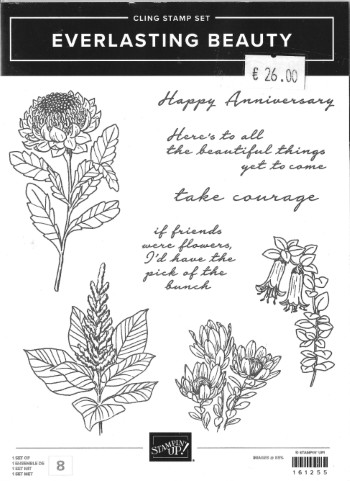 CLING STAMP SET
EVERLASTING BEAUTY
€ 26.00
Happy Anniversary
Here's to all
the beautiful things
yet to come
take courage
if friends
were flowers,
I'd have the
pick of the
bunch
STAMPIN' UP!
1 SET OF
1 ENSEMBLE DE
1 SET MIT
1 SET MET
8
© STAMPIN' UP!
161255